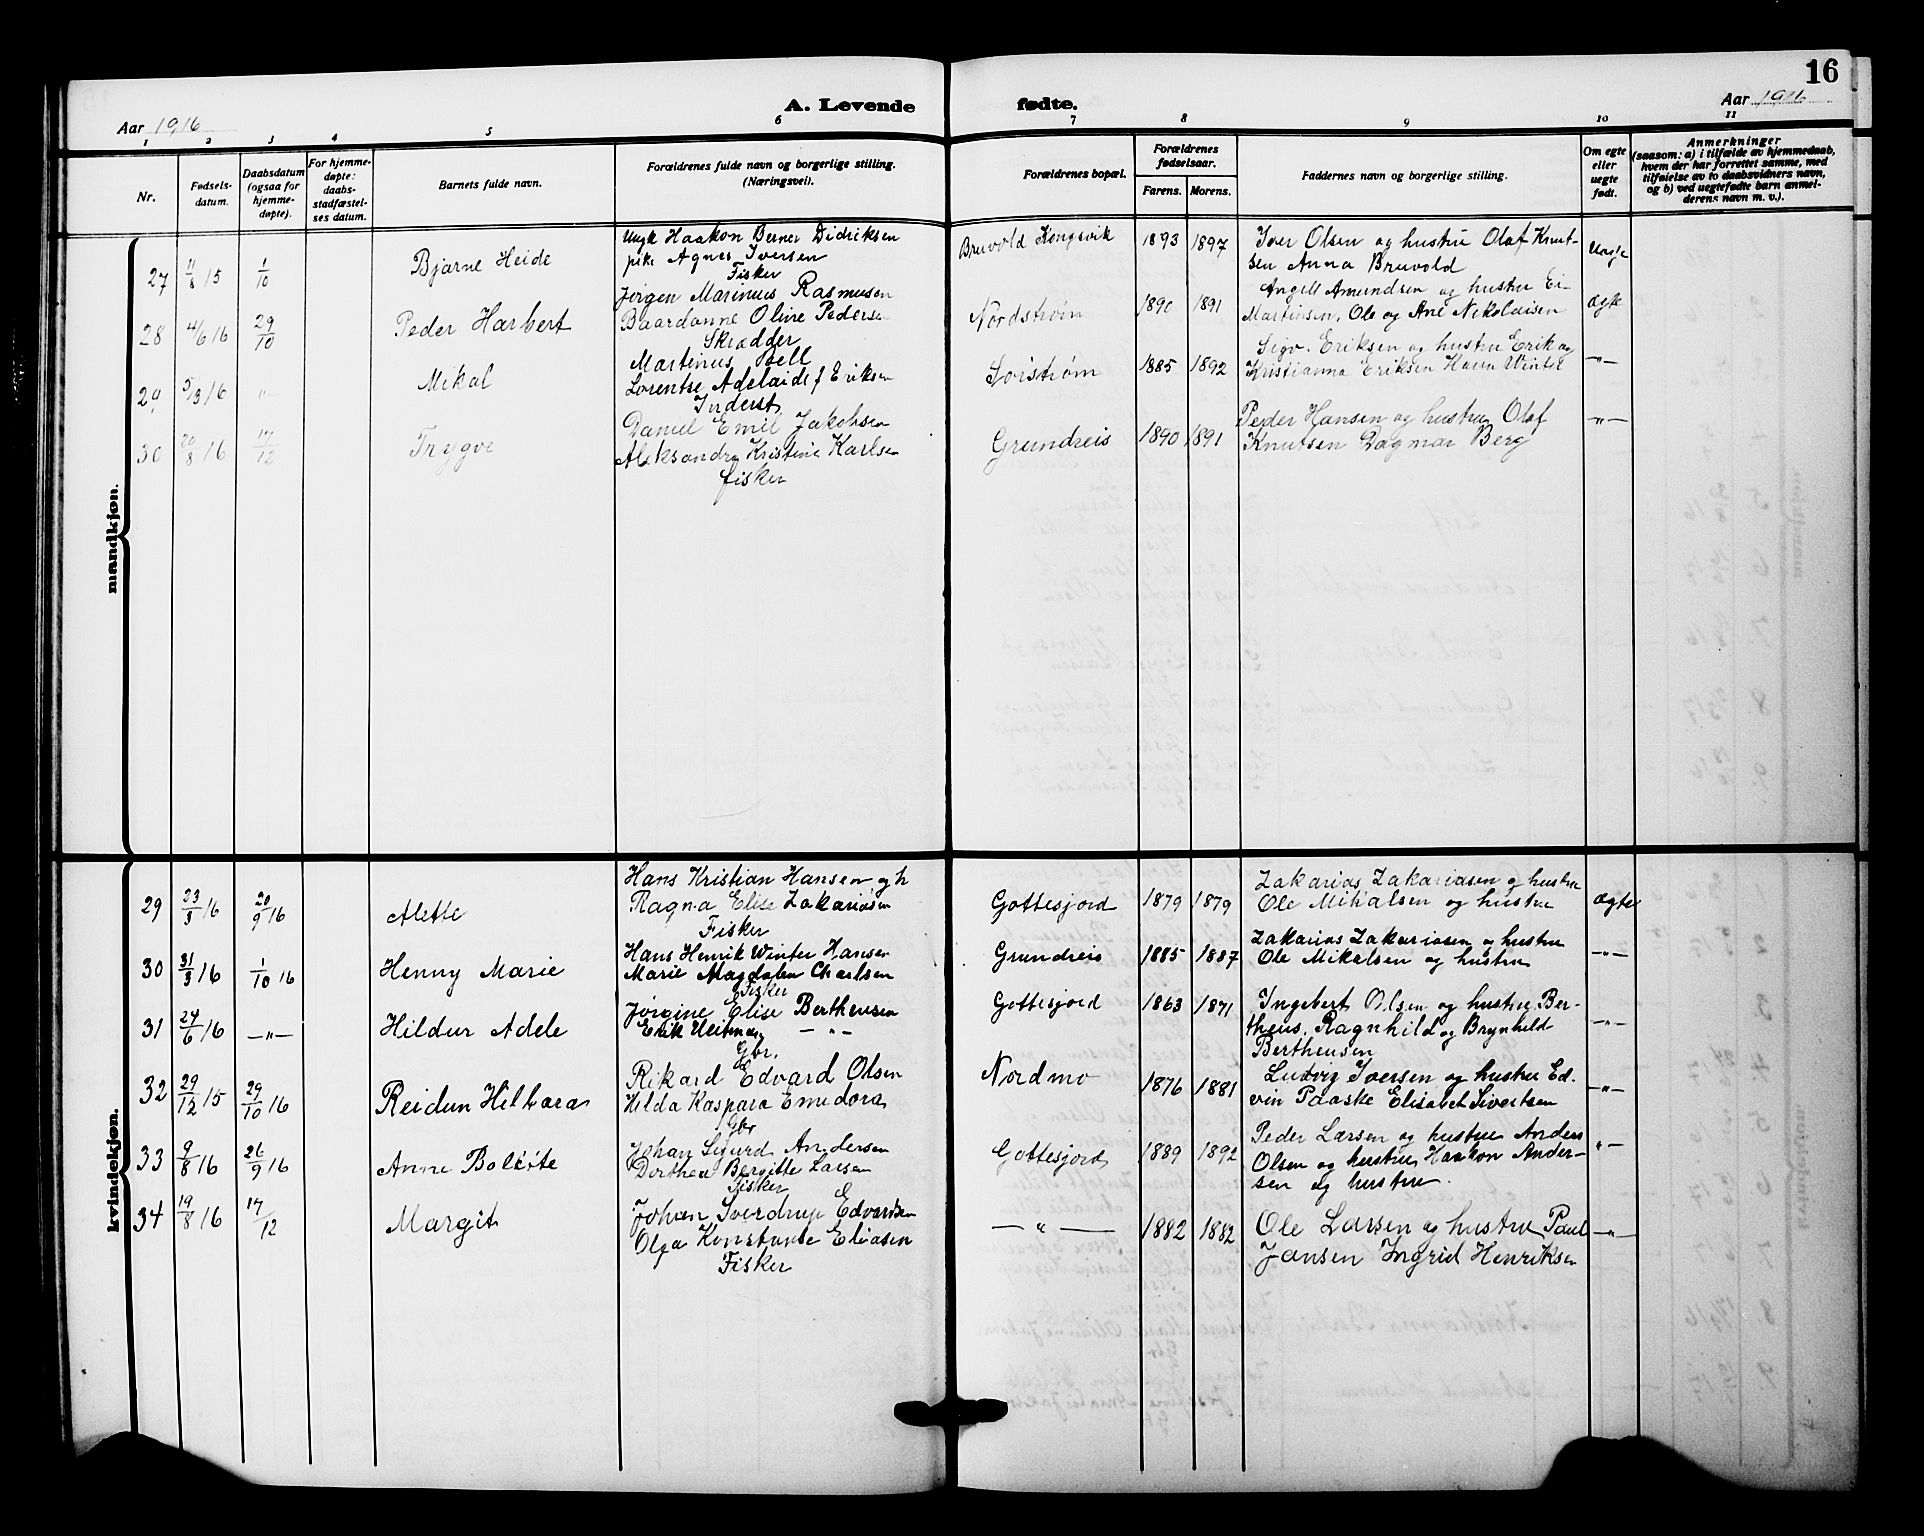 16
A. Levende fødte.
Aar 1916
Aar 1916
1 2 3 4 5 6 7 8 9 10 11
Nr.
Fødsels-
datum.
Daabsdatum
(ogsaa for
hjemme-
døpte).
For hjemme-
døpte:
daabs-
stadfæstel-
ses datum.
Barnets fulde navn.
Forældrenes fulde navn og borgerlige stilling.
(Næringsvei).
Forældrenes bopæl.
Forældrenes
fødselsaar.
Farens. Morens.
Faddernes navn og borgerlige stilling.
Om egte
eller
uegte
født.
Anmerkninger
(saasom: a) i tilfælde av hjemmedaab,
hvem der har forrettet samme, med
tilføielse av to daabsvidners navn,
og b) ved uegtefødte barn anmel-
derens navn m. v.).
mandkjøn.
27 11/8 15 1/10 Bjarne Heide
Ungk Haakon Berner Didriksen
pike Agnes Iversen
Fisker
Bruvold Kongsvik 1893 1897
Iver Olsen og hustru Olaf Knut-
sen Anna Bruvold
Uegte
28 4/6 16 29/10 Peder Harbert
Jørgen Marinius Rasmusen
Baardanne Oline Pederse
Skrædder
Nordstrøm 1890 1891
Angell Amundsen og hustru Ei-
Martinsen, Ole og Ane Nikolaisen
ægte
29. 5/3 16 -"- Mikal
Martinus
Lorentse Adelaide f Eriksen
Inderst
Sørstrøm 1885 1892
Sigv. Eriksen og hustru Erik og
Kristianna Eriksen Winter
-"-
30 20/8 16 17/12 Trygve
Daniel Emil Jakobsen
Aleksandra Kristine Karlsen
fisker
Grundreis 1890 1891
Peder Hansen og hustru Olaf
Knutsen Dagmar Berg
-"-
kvindekjøn.
29 23/3 16 20/9 16 Alette
Hans Kristian Hansen og h
Ragna Elise Zakariasen
Fisker
Gottesjord 1879 1879
Zakarias Zakariasen og hustru
Ole Mikalsen og hustru
ægte
30 31/3 16 1/10 16 Henny Marie
Hans Henrik Winter Hansen
Marie Magdalen Charlsen
Fisker
Grundreis 1885 1887
Zakarias Zakariasen og hustru
Ole Mikalsen og hustru
-"-
31 24/6 16 -"- Hildur Adele
Jørgine Elise Bertheusen
Erik -"-
Gbr.
Gottesjord 1863 1871
Ingebert Olsen og hustru Ber-
theus, Ragnhild og Brynhild
Bertheusen
-"-
32 29/12 15 29/10 16 Reidun Hilbara
Rikard Edvard Olsen
Hilda Kaspara Emedora
Gbr
Nordmo 1876 1881
Ludvig Iversen og hustru Ed-
vin Paaske Elisabet Sivertsen
-"-
33 9/8 16 26/9 16 Anne Bolette
Johan Sigurd Andersen
Dorthea Bergitte Larsen
Fisker
Gottesjord 1889 1892
Peder Larsen og hustru Anders
Olsen og hustru Haakon Ander-
sen og hustru.
"-
34 19/8 16 17/12 Margit
Johan Sverdrup Edvardsen
Olga Konstanse Eliasen
Fisker
-"- 1882 1882
Ole Larsen og hustru Paul
Jansen Ingrid Henriksen
-"-